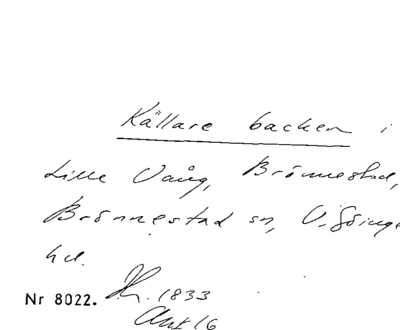 Källare backen i
Lille Vång, Brönnestad,
Brönnestad sn, V. Göinge
hd.
Nr 8022. 1833
Akt 16